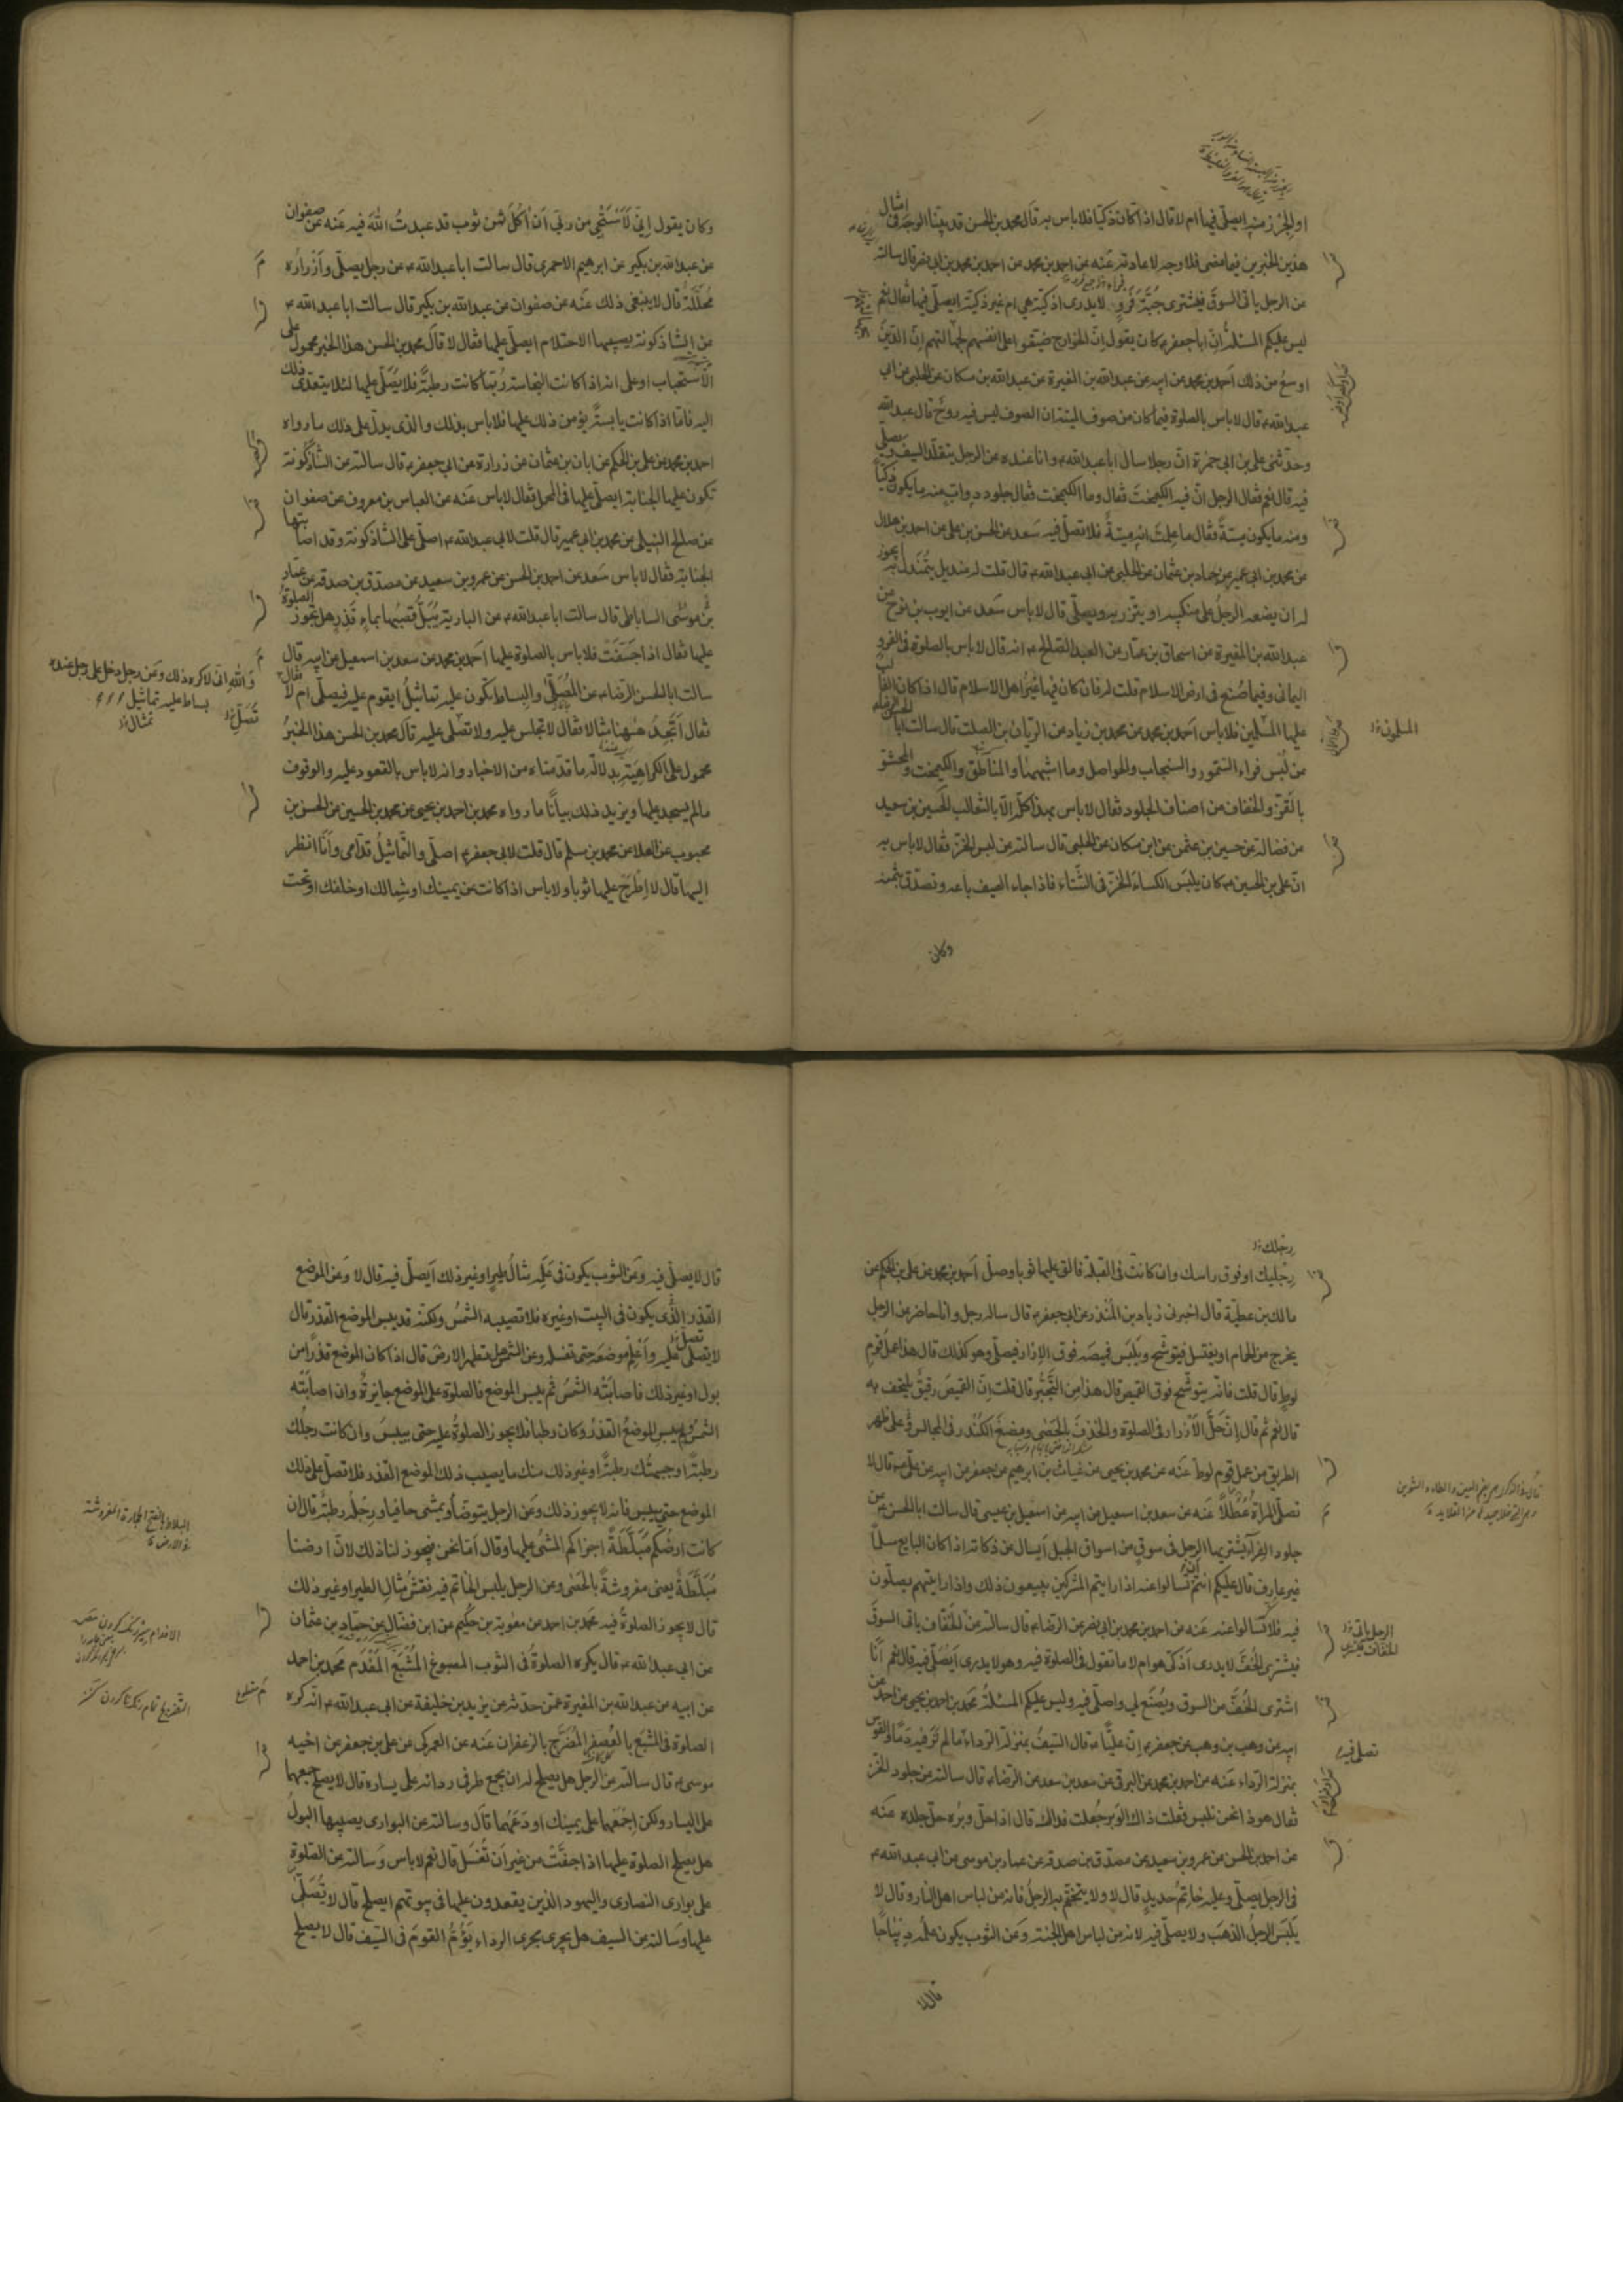 او الجرز منه ايصلّى فيها ام لا قال اذا كان ذكيا فلا باس به قال محمد بن الحسن قد بيّنا الوجه فى امثال
هذين الخبرين فيما مضى فلا وجه لاعادته عنه عن احمد بن محمد عن احمد بن محمد بن ابى نصر قال سالته
عن الرجل ياتى السوق فيشترى جبّة فرو لا يدرى اذكيّة هى ام غير ذكيّة ايصلّى فيها فقال نعم
ليس عليكم المسئلة انّ ابا جعفر كان يقول انّ الخوارج ضيّقوا على انفسهم لجهالتهم انّ الدين
اوسع من ذلك احمد بن محمد عن ابيه عن عبدالله بن المغيرة عن عبدالله بن مسكان عن الحلبى عن ابى
عبدالله قال لا باس بالصلوة فيما كان من صوف الميتة ان الصوف ليس فيه روح قال عبدالله
وحدّثنى على بن ابى حمزة انّ رجلا سال ابا عبدالله وانا عنده عن الرجل يتقلّد السيف ويصلّى
فيه قال نعم فقال الرجل انّ فيه الكيمخت فقال وما الكيمخت فقال جلود دوابّ منه ما يكون ذكيّا
ومنه ما يكون ميتة فقال ما علمت انه ميتة فلا تصلّ فيه سعد عن الحسن بن على عن احمد بن هلال
عن محمد بن ابى عمير عن حماد بن عثمان عن الحلبى عن ابى عبدالله قال قلت له منديل يتمندل به يجوز
له ان يضعه الرجل على منكبيه او يتزر به ويصلّى قال لا باس سعد عن ايوب بن نوح عن
عبدالله بن المغيرة عن اسحاق بن عمّار عن العبد الصالح انه قال لا باس بالصلوة فى الفرو
اليمانى وفيما صنع فى ارض الاسلام قلت له فان كان فيها غير اهل الاسلام قال اذا كان الغالب
عليها المسلمين فلا باس احمد بن محمد عن محمد بن زياد عن الريان بن الصلت قال سالت ابا الحسن الرضا
عن لبس فراء السمور والسنجاب والحواصل وما اشبهها والمناطق والكيمخت والمحشو
بالقزّ والخفاف من اصناف الجلود فقال لا باس بهذا كلّه الّا بالثعالب الحسين بن سعيد
عن فضالة عن حسين بن عثمن عن ابن مسكان عن الحلبى قال سالته عن لبس الخز فقال لا باس به
انّ على بن الحسين كان يلبس الكساء الخز فى الشتاء فاذا جاء الصيف باعه وتصدّق بثمنه
وكان
المسلمون
وكان يقول انّى لاستحيى من ربّى ان اكل ثمن ثوب قد عبدت الله فيه عنه عن صفوان
عن عبدالله بن بكير عن ابرهيم الاحمرى قال سالت ابا عبدالله عن رجل يصلّى وازراره
محلّلة قال لا ينبغى ذلك عنه عن صفوان عن عبدالله بن بكير قال سالت ابا عبدالله
عن الشاذكونة يصيبها الاحتلام ايصلّى عليها فقال لا قال محمد بن الحسن هذا الخبر محمول على
الاستحباب او على انه اذا كانت النجاسة رطبة فلا يصلّى عليها لئلا يتعدّى ذلك
اليه فامّا اذا كانت يابسة يؤمن ذلك عليها فلا باس بذلك والذى يدلّ على ذلك ما رواه
احمد بن محمد عن على بن الحكم عن ابان بن عثمان عن زرارة عن ابى جعفر قال سالته عن الشاذكونة
تكون عليها الجنابة ايصلّى عليها فى المحمل فقال لا باس عنه عن العباس بن معروف عن صفوان
عن صالح النيلى عن محمد بن ابى عمير قال قلت لابى عبدالله اصلّى على الشاذكونة وقد اصابتها
الجنابة فقال لا باس سعد عن احمد بن الحسن عن عمرو بن سعيد عن مصدّق بن صدقه عن عمار
بن موسى الساباطى قال سالت ابا عبدالله عن البارية يبلّ قصبها بماء قذر هل تجوز الصلوة
عليها فقال اذا جففت فلا باس بالصلوة عليها احمد بن محمد عن سعد بن اسمعيل عن ابيه قال
سالت ابا الحسن الرضا عن المصلّى والبساط يكون عليه تماثيل ايقوم عليه فيصلّى ام لا فقال
والله انّى لاكره ذلك وعن رجل دخل على رجل عنده
بساط عليه تماثيل
تمثال
فقال اتجد ههنا مثالا فقال لا تجلس عليه ولا تصلّى عليه قال محمد بن الحسن هذا الخبر
محمول على الكراهية بدلالة ما قدّمناه من الاخبار وانه لا باس بالقعود عليه والوقوف
ما لم يسجد عليها ويزيد ذلك بيانا ما رواه محمد بن احمد بن يحيى عن محمد بن الحسين عن الحسن بن
محبوب عن العلا عن محمد بن مسلم قال قلت لابى جعفر اصلّى والتماثيل قدّامى وانا انظر
اليها قال لا اطرح عليها ثوبا ولا باس اذا كانت عن يمينك او شمالك او خلفك او تحت
رجلك
رجليك او فوق راسك وان كانت فى القبلة فالق عليها ثوبا وصلّ احمد بن محمد عن على بن الحكم عن
مالك بن عطيّة قال اخبرنى زياد بن المنذر عن ابى جعفر قال ساله رجل وانا حاضر عن الرجل
يخرج من الحمام او يغتسل فيتوشح ويلبس قميصه فوق الازار فيصلّى وهو كذلك قال هذا عمل قوم
لوط قال قلت فانّه يتوشّح فوق القميص قال هذا من التجبّر قال قلت انّ القميص رقيق يلتحف به
قال نعم ثم قال انّ حلّ الازرار فى الصلوة والخذف بالحصى ومضغ الكندر فى المجالس وعلى ظهر
الطريق من عمل قوم لوط عنه عن محمد بن يحيى عن غياث بن ابرهيم عن جعفر عن ابيه عن علىّ قال لا
تصلّى المراة عطلا عنه عن سعد بن اسمعيل عن ابيه عن اسمعيل بن عيسى قال سالت ابا الحسن عن
جلود الفراء يشتريها الرجل فى سوق من اسواق الجبل ايسال عن ذكاته اذا كان البايع مسلما
غير عارف قال عليكم انتم تسالوا عنه اذا رايتم المشركين يبيعون ذلك واذا رايتهم يصلون
فيه فلا تسالوا عنه عنه عن احمد بن محمد بن ابى نصر عن الرضا قال سالته عن الخفّاف ياتى السوق
فيشترى الخفّ لا يدرى اذكىّ هو ام لا ما تقول فى الصلوة فيه وهو لا يدرى ايصلّى فيه قال نعم انا
اشترى الخفّ من السوق ويصنع لى واصلّى فيه وليس عليكم المسئلة محمد بن احمد بن يحيى عن احمد عن
ابيه عن وهب بن وهب عن جعفر انّ عليّا قال السيف بمنزلة الرداء ما لم تر فيه دما والقوس
بمنزلة الرداء عنه عن احمد بن محمد عن البرقى عن سعد بن سعد عن الرضا قال سالته عن جلود الخز
فقال هوذا نحن نلبس فقلت ذاك الوبر جعلت فداك قال اذا حلّ وبره حلّ جلده عنه
عن احمد بن الحسن عن عمرو بن سعيد عن مصدّق بن صدقه عن عمار بن موسى عن ابى عبدالله
فى الرجل يصلّى وعليه خاتم حديد قال لا ولا يتختّم به الرجل فانه من لباس اهل النار وقال لا
يلبس الرجل الذهب ولا يصلّى فيه لانه من لباس اهل الجنة وعن الثوب يكون علمه ديباجا
قال لا
قال لا يصلّى فيه وعن الثوب يكون فى علمه مثال طير او غير ذلك ايصلّى فيه قال لا وعن الموضع
القذر الذى يكون فى البيت او غيره فلا تصيبه الشمس ولكنّه قد يبس الموضع القذر قال
لا يصلّى عليه واعلم موضعه حتى تغسله وعن الشمس هل تطهر الارض قال اذا كان الموضع قذرا من
بول او غير ذلك فاصابته الشمس ثم يبس الموضع فالصلوة على الموضع جايزة وان اصابته
الشمس ولم ييبس الموضع القذر وكان رطبا فلا يجوز الصلوة عليه حتى ييبس وان كانت رجلك
رطبة او جبهتك رطبة او غير ذلك منك ما يصيب ذلك الموضع القذر فلا تصلّ على ذلك
الموضع حتى ييبس فانه لا يجوز ذلك وعن الرجل يتوضّأ ويمشى حافيا ورجله رطبة قال ان
كانت ارضكم مبلّطة اجزاكم المشى عليها وقال امّا نحن فيجوز لنا ذلك لانّ ارضنا
مبلّطة يعنى مفروشة بالحصى وعن الرجل يلبس الخاتم فيه نقش مثال الطير او غير ذلك
قال لا يجوز الصلوة فيه محمد بن احمد عن معوية بن حكيم عن ابن فضال عن حماد بن عثمان
عن ابى عبدالله قال يكره الصلوة فى الثوب المصبوغ المشبع المفدم محمد بن احمد
عن ابيه عن عبدالله بن المغيرة عمّن حدّثه عن يزيد بن خليفة عن ابى عبدالله انّه كره
الصلوة فى المشبع بالعصفر المضرّج بالزعفران عنه عن العمركى عن على بن جعفر عن اخيه
موسى قال سالته عن الرجل هل يصلح له ان يجمع طرفى ردائه على يساره قال لا يصلح جمعهما
على اليسار ولكن اجمعهما على يمينك او دعهما قال وسالته عن البوارى يصيبها البول
هل يصلح الصلوة عليها اذا جفّت من غير ان تغسل قال نعم لا باس وسالته عن الصلوة
على بوارى النصارى واليهود الذين يقعدون عليها فى بيوتهم ايصلح قال لا تصلّى
عليها وسالته عن السيف هل يجرى مجرى الرداء يؤمّ القوم فى السيف قال لا يصلح
البلاط بالفتح الحجارة المفروشة